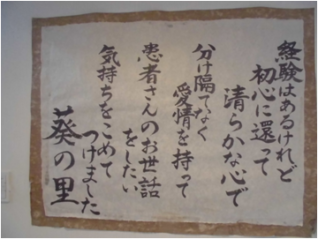 経験はあるけれど
初心に還って
清らかな心で
分け隔てなく
愛情を持って
患者さんのお世話
をしたい
気持ちをこめて
つけました
葵の里